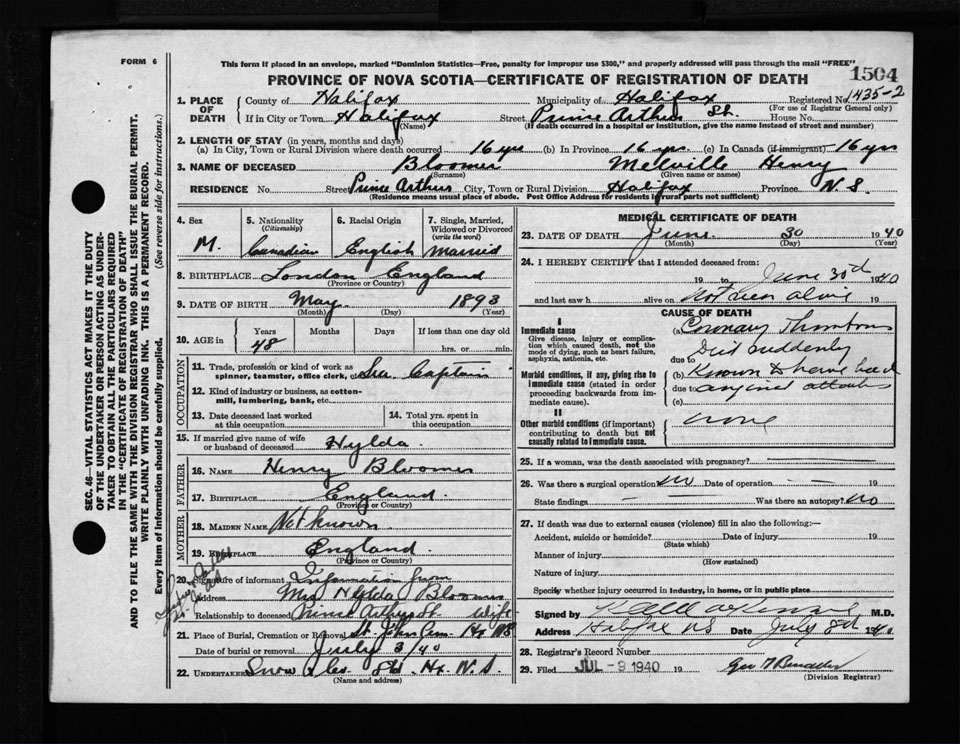 FORM 6
This form if placed in an envelope, marked "Dominion Statistics—Free, penalty for improper use $300," and properly addressed will pass through the mail "FREE"
PROVINCE OF NOVA SCOTIA—CERTIFICATE OF REGISTRATION OF DEATH
1504
1. PLACE OF DEATH County of Halifax Municipality of Halifax Registered No. 1435-2
(For use of Registrar General only)
If in City or Town Halifax Street Prince Arthur St. House No.
(Name) (If death occurred in a hospital or institution, give the name instead of street and number)
2. LENGTH OF STAY (in years, months and days)
(a) In City, Town or Rural Division where death occurred 16 yrs (b) In Province 16 yrs. (c) In Canada (if immigrant) 16 yrs
3. NAME OF DECEASED Bloomer Melville Henry
(Surname) (Given name or names)
RESIDENCE No. Street Prince Arthur City, Town or Rural Division Halifax Province N.S.
(Residence means usual place of abode. Post Office Address for residents in rural parts not sufficient)
4. Sex M.
5. Nationality (Citizenship) Canadian
6. Racial Origin English
7. Single, Married, Widowed or Divorced (write the word) Married
8. BIRTHPLACE London England
(Province or Country)
9. DATE OF BIRTH May 1893
(Month) (Day) (Year)
10. AGE in Years 48 Months Days If less than one day old
hrs. or min.
OCCUPATION
11. Trade, profession or kind of work as spinner, teamster, office clerk, etc. Sea Captain
12. Kind of industry or business, as cotton-mill, lumbering, bank, etc.
13. Date deceased last worked at this occupation
14. Total yrs. spent in this occupation
15. If married give name of wife or husband of deceased Hylda.
FATHER
16. NAME Henry Bloomer
17. BIRTHPLACE England.
(Province or Country)
MOTHER
18. MAIDEN NAME Not known.
19. BIRTHPLACE England.
(Province or Country)
20. Signature of informant Information from
Address Mrs Hylda Bloomer
Relationship to deceased Prince Arthur St Wife
21. Place of Burial, Cremation or Removal St. John Cem. Hx NS
Date of burial or removal July 3/40
22. UNDERTAKER Snow & Co. Ltd. Hx. N.S.
(Name and address)
MEDICAL CERTIFICATE OF DEATH
23. DATE OF DEATH June 30 1940
(Month) (Day) (Year)
24. I HEREBY CERTIFY that I attended deceased from:
19 to June 30th 1940
and last saw h alive on Not seen alive 19
CAUSE OF DEATH
I
Immediate cause
Give disease, injury, or complication which caused death, not the mode of dying, such as heart failure, asphyxia, asthenia, etc.
(a) Coronary Thrombosis
Died suddenly
due to
Morbid conditions, if any, giving rise to immediate cause (stated in order proceeding backwards from immediate cause).
(b) Known to have had
due to angina attacks
(c)
II
Other morbid conditions (if important) contributing to death but not causally related to immediate cause.
none
25. If a woman, was the death associated with pregnancy?
26. Was there a surgical operation no Date of operation
State findings Was there an autopsy? no
27. If death was due to external causes (violence) fill in also the following:—
Accident, suicide or homicide? Date of injury 19
(State which)
Manner of injury
(How sustained)
Nature of injury
Specify whether injury occurred in industry, in home, or in public place
Signed by M.D.
Address Halifax NS Date July 8th 1940
28. Registrar's Record Number
29. Filed JUL - 9 1940 19
(Division Registrar)
SEC. 46—VITAL STATISTICS ACT MAKES IT THE DUTY
OF THE UNDERTAKER OR PERSON ACTING AS UNDERTAKER TO OBTAIN ALL THE PARTICULARS REQUIRED
IN THE "CERTIFICATE OF REGISTRATION OF DEATH"
AND TO FILE THE SAME WITH THE DIVISION REGISTRAR WHO SHALL ISSUE THE BURIAL PERMIT.
WRITE PLAINLY WITH UNFADING INK. THIS IS A PERMANENT RECORD.
Every item of information should be carefully supplied. (See reverse side for instructions.)